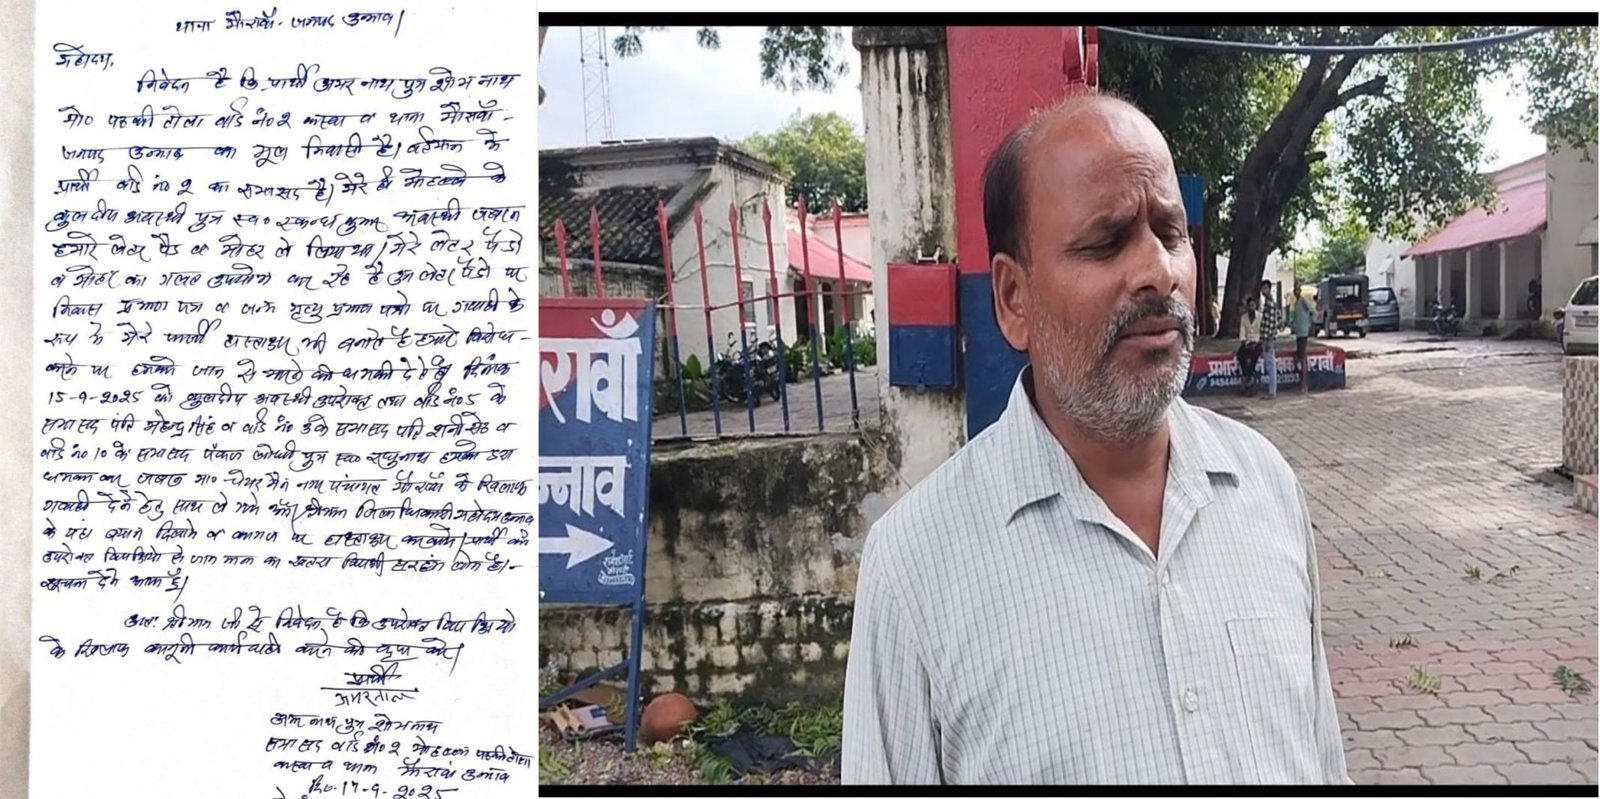 थाना मौरावाँ - जनपद उन्नाव।
महोदय,
निवेदन है कि प्रार्थी अमर नाथ पुत्र शोभ नाथ
मो० पठकी टोला वार्ड नं० २ कस्बा व थाना मौरावाँ -
जनपद उन्नाव का मूल निवासी है। वर्तमान में
प्रार्थी वार्ड नं० २ का सभासद है। मेरे ही मोहल्ले के
कुलदीप अवस्थी पुत्र स्व० स्कन्ध कुमार अवस्थी जबरन
हमारे लेटर पैड व मोहर ले लिया था। मेरे लेटर पैडो
व मोहर का गलत उपयोग कर रहे है उन लेटर पैडो पर
निवास प्रमाण पत्र व जन्म मृत्यु प्रमाण पत्रो पर गवाही के
रूप में मेरे फर्जी हस्ताक्षर भी बनाते है हमारे विरोध -
करने पर हमको जान से मारने की धमकी देते है दिनांक
15-9-2025 को कुलदीप अवस्थी उपरोक्त तथा वार्ड नं० 5 के
सभासद पति महेन्द्र सिंह व वार्ड नं० के सभासद पति शनी सेठ व
वार्ड नं० 10 के सभासद पंकज लोधी पुत्र स्व० रघुनाथ हमको डरा
धमका कर जबरन मा० चेयरमैन नगर पंचायत मौरावाँ के खिलाफ
गवाही देने हेतु साथ ले गये और श्रीमान जिलाधिकारी महोदय उन्नाव
के यहां बयान दिलाये व कागज पर हस्ताक्षर करवाये। प्रार्थी को
उपरोक्त विपक्षियो से जान माल का खतरा विपक्षी सरहंग लोग है।-
सूचना देने आया हूँ।
अतः श्रीमान जी से निवेदन है कि उपरोक्त विपक्षियो
के खिलाफ कानूनी कार्यवाही करने की कृपा करें।
प्रार्थी
अमरनाथ
अमर नाथ पुत्र शोभनाथ
सभासद वार्ड नं० २ मोहल्ला पठकी टोला
कस्बा व थाना मौरावां उन्नाव
दि०-17-9-2025
रावाँ
न्नाव
प्रभारी रावाँ